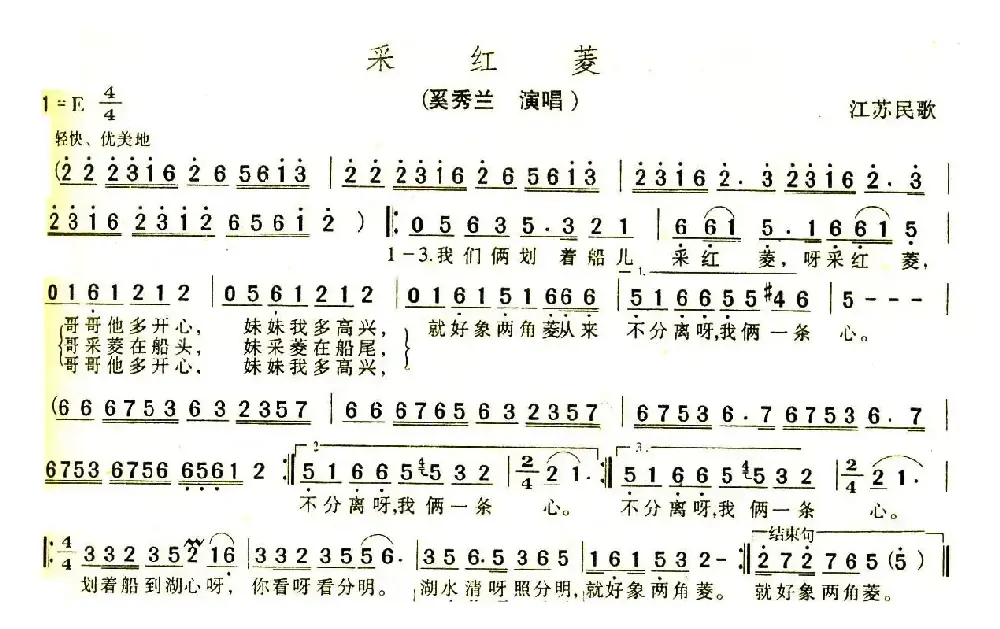 采 红 菱
1=E 4/4
(奚秀兰 演唱)
江苏民歌
轻快、优美地
(2 2 2316 2 6 5613 | 2 2 2316 2 6 5613 | 2316 2. 3 2316 2. 3 |
2316 2312 6561 2 ) |: 0 5 6 3 5. 3 2 1 | 6 6 1 5. 1 6 6 1 5
1-3.我们俩划 着船儿 采红 菱, 呀采红 菱,
0 1 6 1 2 1 2 | 0 5 6 1 2 1 2 | 0 1 6 1 5 1 6 6 6 | 1. 5 1 6 6 5 5 #4 6 | 5 - - -
哥哥他多开心, 妹妹我多高兴, 就好象两角菱从来 不分离呀,我俩一条 心。
哥采菱在船头, 妹采菱在船尾,
哥哥他多开心, 妹妹我多高兴,
(6 6 6753 6 3 2357 | 6 6 6765 6 3 2357 | 6753 6. 7 6753 6. 7 |
6753 6756 6561 2 :| 2. 5 1 6 6 5 4 5 3 2 | 2/4 2 1. :| 3. 5 1 6 6 5 4 5 3 2 | 2/4 2 1. |
不分离呀,我 俩一条 心。 不分离呀,我 俩一条 心。
|: 4/4 3 3 2 3 5 2 1 6 | 3 3 2 3 5 5 5 6. | 3 5 6. 5 3 6 5 | 1 6 1 5 3 2 - :| 结束句 2 7 2 7 6 5 (5 ) |
划着船到湖心呀, 你看呀看分明。 湖水清呀照分明,就好象两角菱。 就好象两角菱。